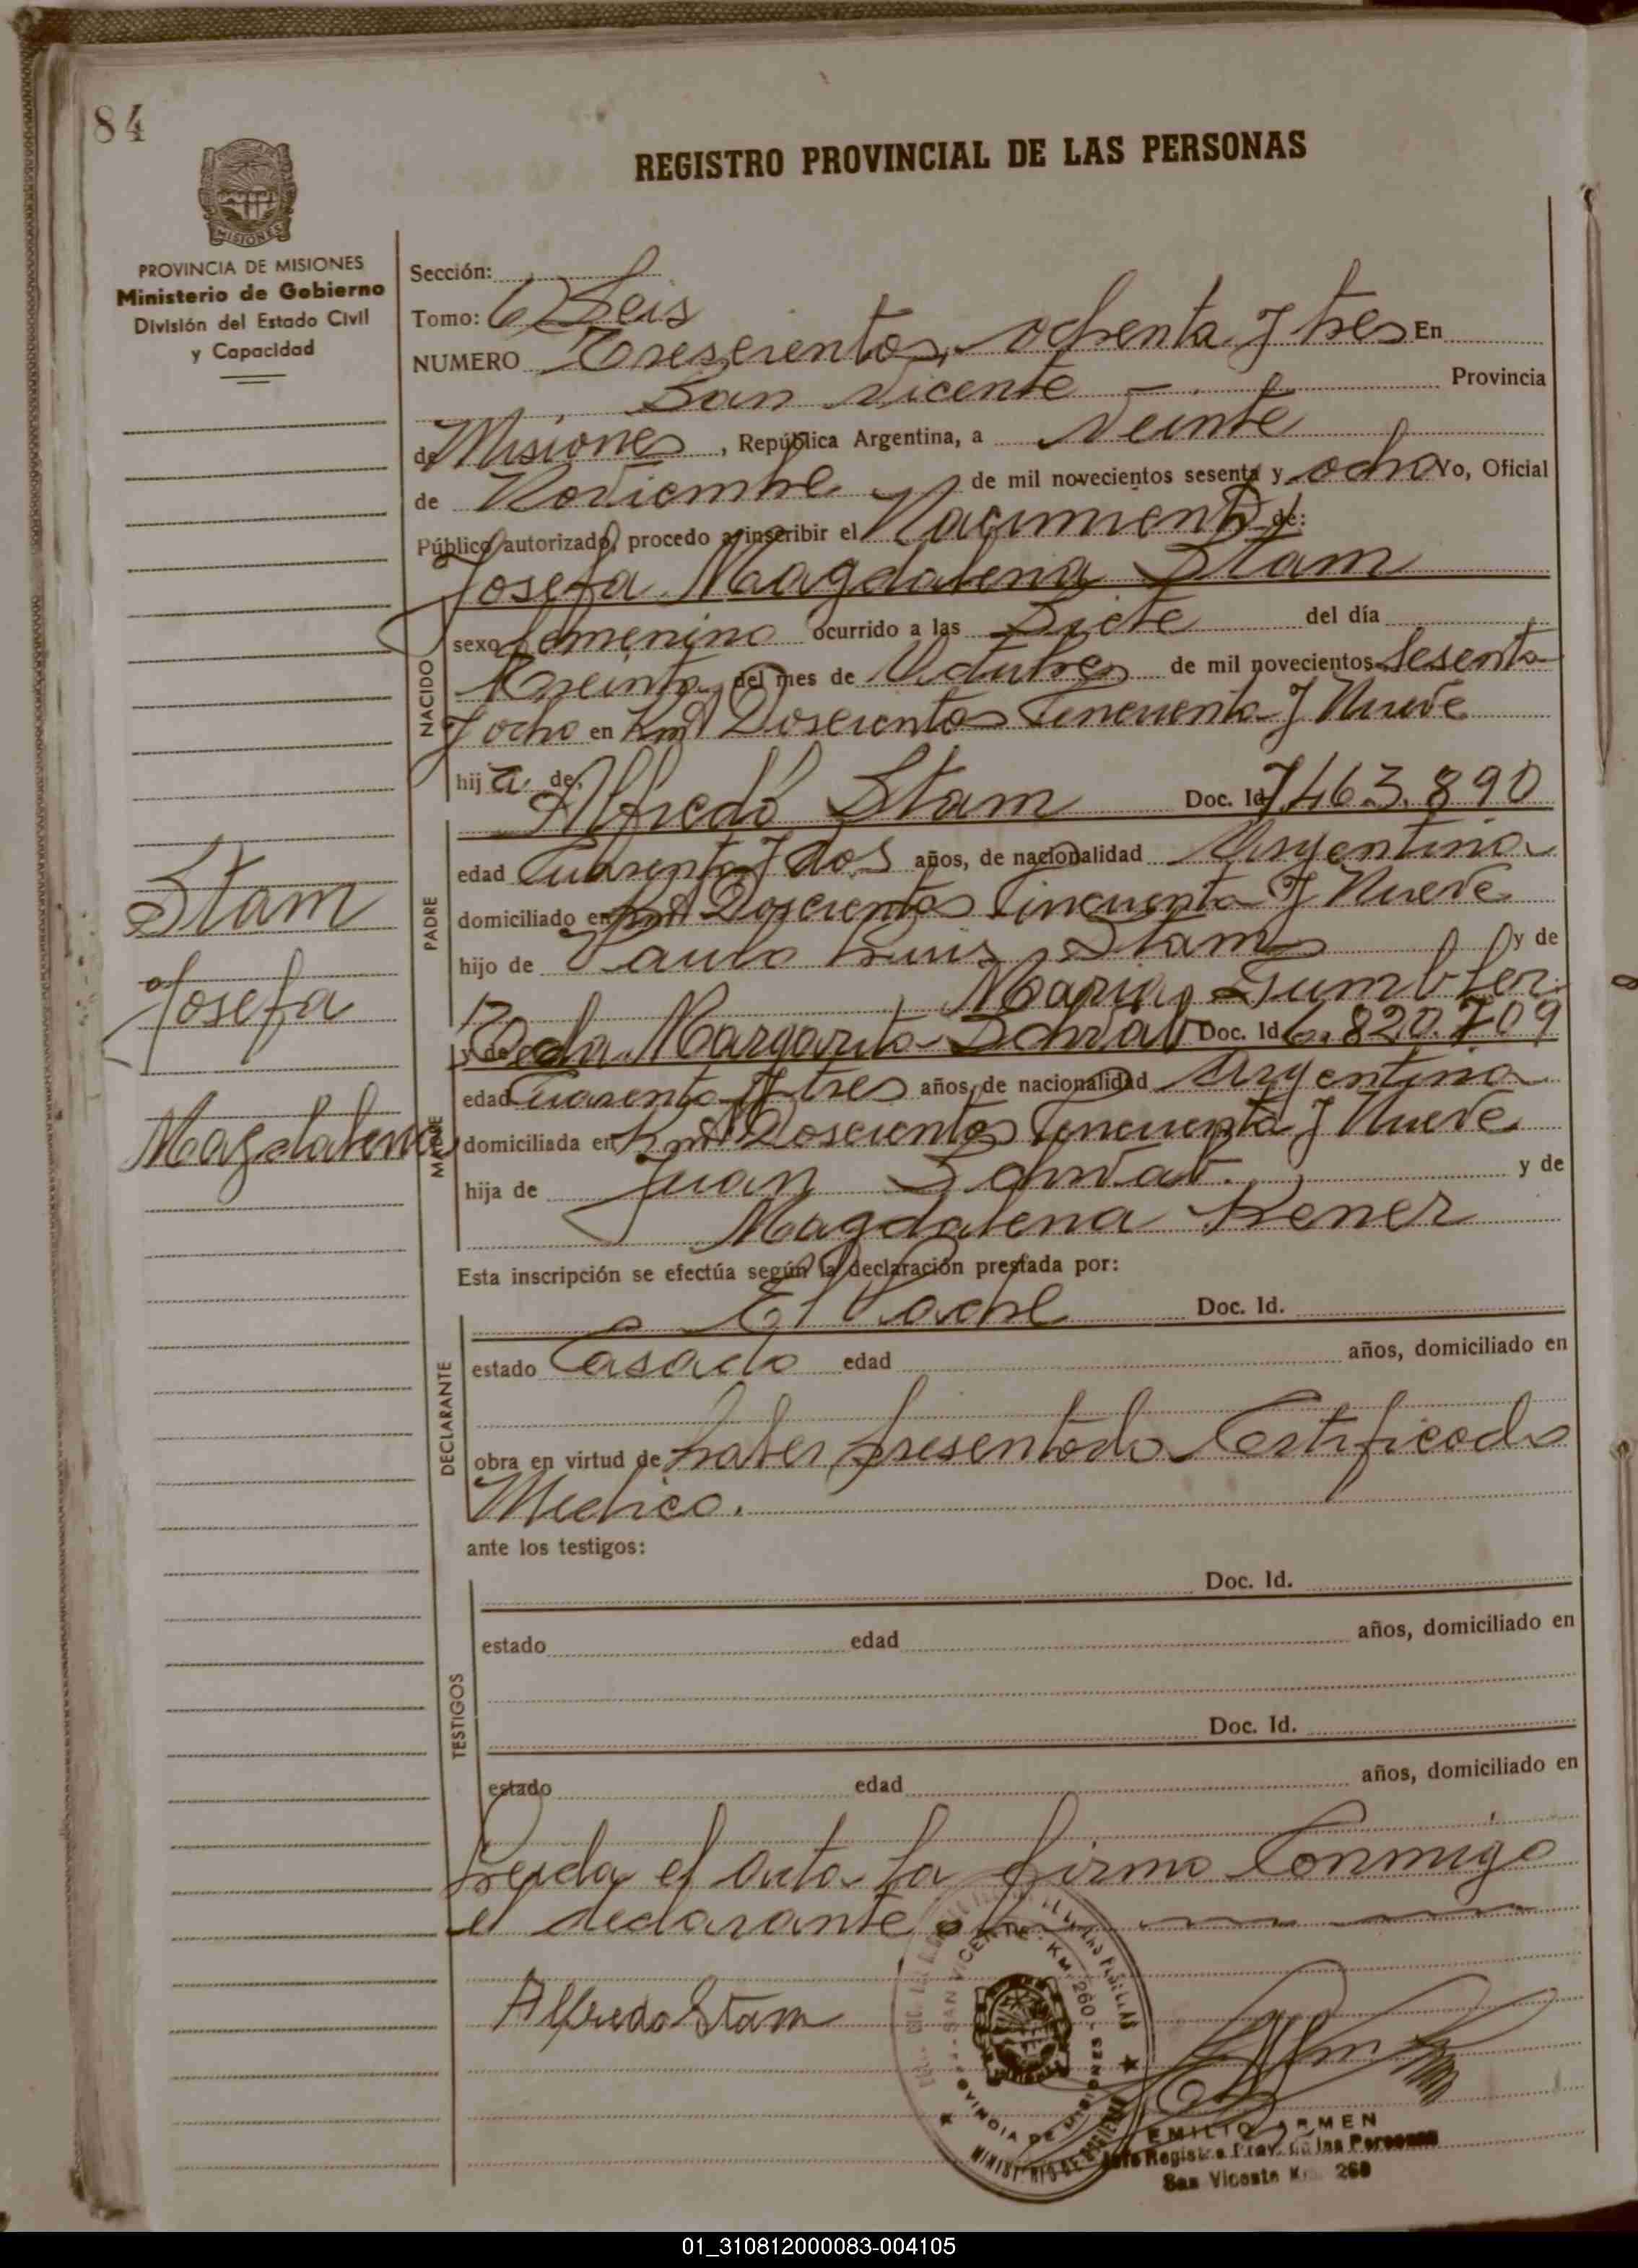 84
REGISTRO PROVINCIAL DE LAS PERSONAS
MISIONES
PROVINCIA DE MISIONES
Ministerio de Gobierno
División del Estado Civil
y Capacidad
Sección:
Tomo: 6 Seis
NUMERO Trescientos ochenta y tres En
San Vicente Provincia
de Misiones, República Argentina, a Veinte
de Noviembre de mil novecientos sesenta y ocho Yo, Oficial
Público autorizado, procedo a inscribir el Nacimiento de:
Josefa Magdalena Stam
NACIDO
sexo femenino ocurrido a las Siete del día
Treinta del mes de Octubre de mil novecientos Sesenta
y ocho en Km Doscientos Cincuenta y Nueve
hija de:
Alfredo Stam Doc. Id. 7.463.890
PADRE
edad Cuarenta y dos años, de nacionalidad Argentina
domiciliado en Km Doscientos Cincuenta y Nueve
hijo de Paulo Luis Stam y de
Maria
y de Margarita Schvab Doc. Id. 6.820.709
MADRE
edad Cuarenta y tres años, de nacionalidad Argentina
domiciliada en Km Doscientos Cincuenta y Nueve
hija de Juan Schvab. y de
Magdalena Kener
Stam
Josefa
Magdalena
Esta inscripción se efectúa según la declaración prestada por:
El Padre Doc. Id.
DECLARANTE
estado Casado edad años, domiciliado en
obra en virtud de haber presentado Certificado
Medico.
ante los testigos:
Doc. Id.
TESTIGOS
estado edad años, domiciliado en
Doc. Id.
estado edad años, domiciliado en
Leida el acta la firma Conmigo
el declarante
Alfredo Stam
SAN VICENTE - KM. 260 - MISIONES
PROVINCIA DE MISIONES
MINISTERIO DE GOBIERNO
EMILIO ARMEN
Jefe Registro Prov. de las Personas
San Vicente Km. 260
01_310812000083-004105